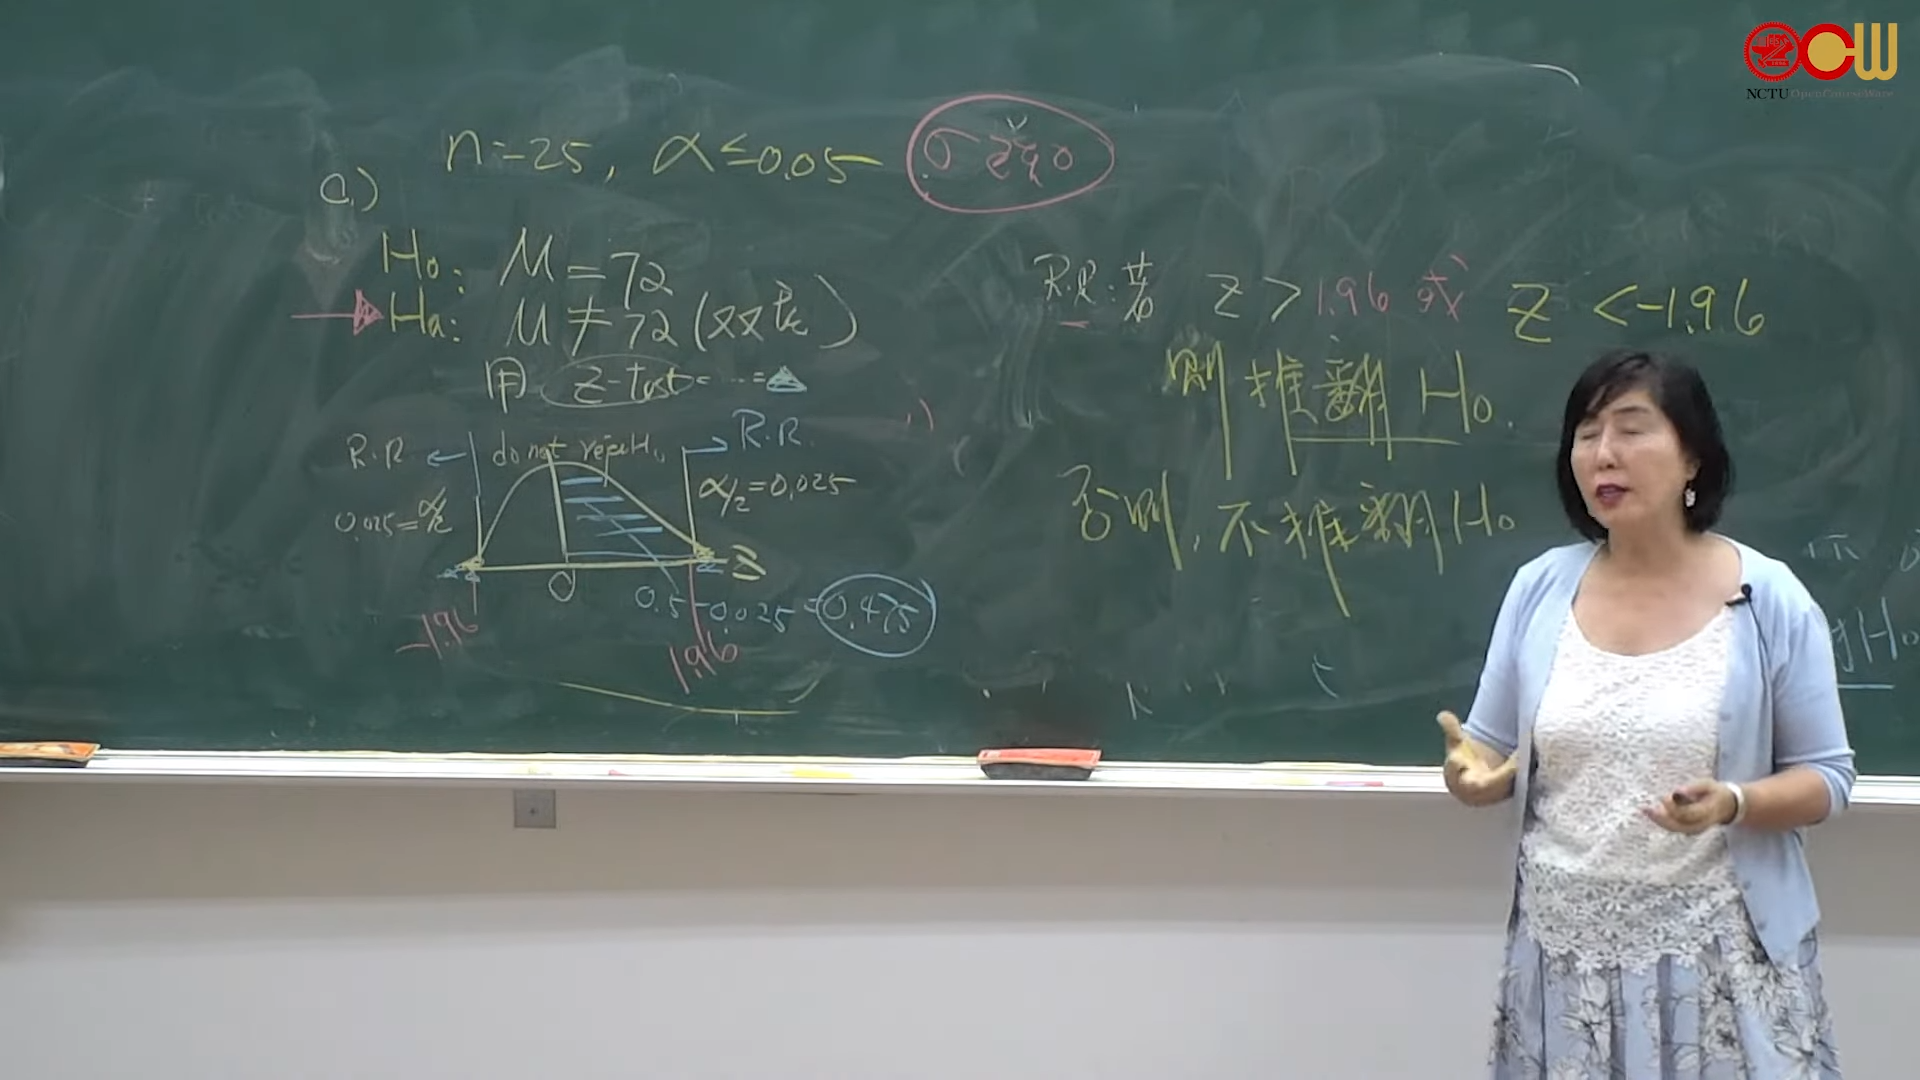 NCTU OpenCourseWare
n=25, α≤0.05
σ 已知
a.)
H₀: μ=72
Ha: μ≠72 (双尾)
用 Z-test
R.R. ← do not reject H₀ → R.R.
0.025=α/2
α/2=0.025
0
Z
0.5-0.025=0.475
-1.96
1.96
R.R.:若 Z>1.96 或 Z<-1.96
則推翻 H₀.
否則,不推翻 H₀